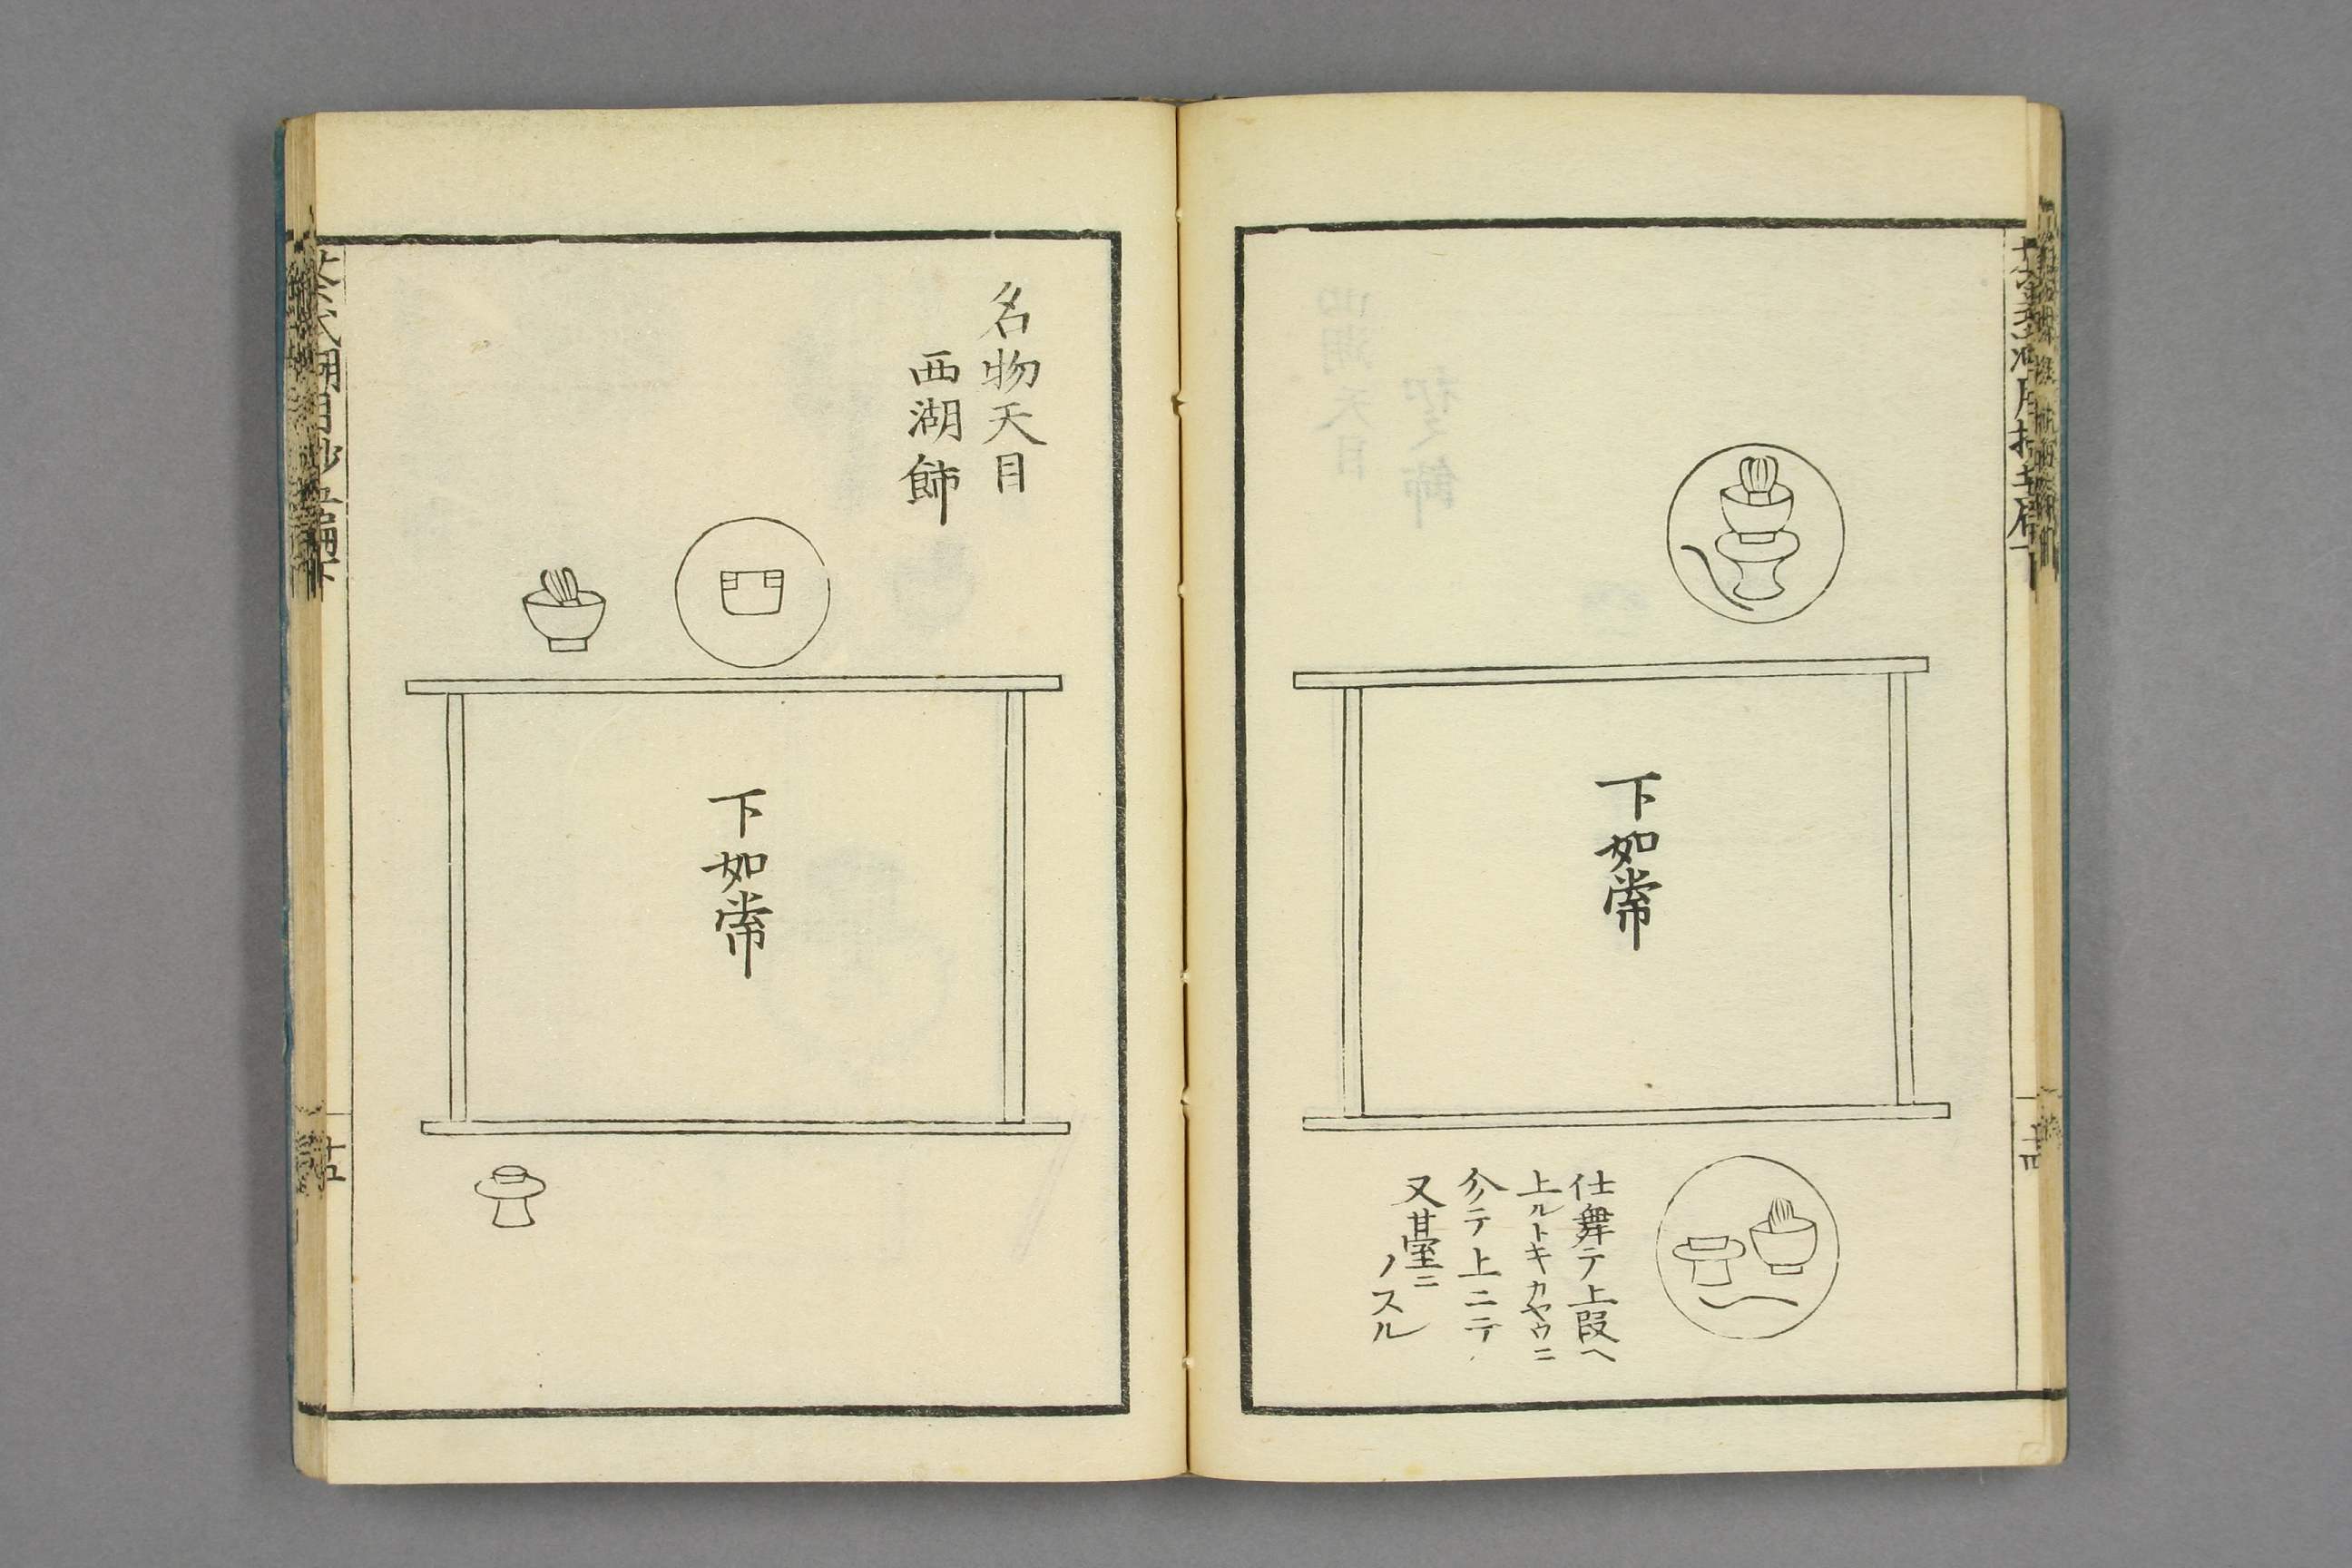 下如常
仕舞テ上段ヘ
上ルトキカヤウニ
分テ上ニテ
又其臺ニ
ノスル
名物天目
西湖飾
下如常